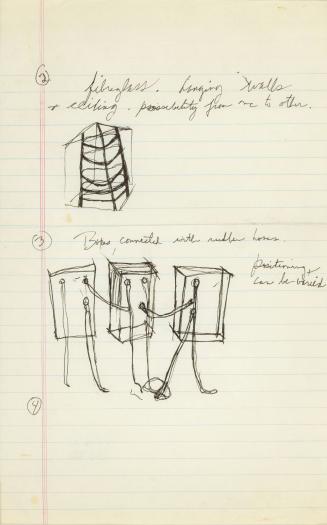 2
fiberglass. hanging walls
+ ceiling. possibility from one to other.
3
Boxes, connected with rubber hoses.
positioning
can be varied
4